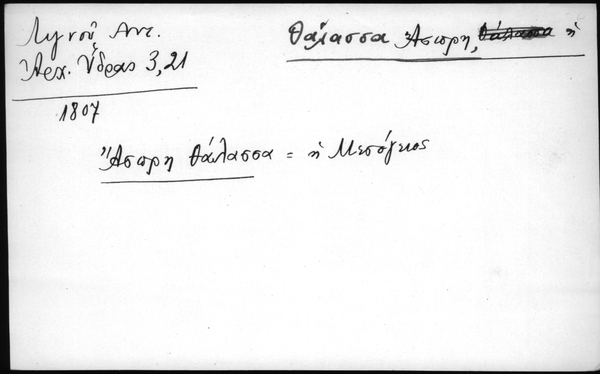 Λιγνοῦ Ἀντ.
Ἀρχ. Ὕδρας 3,21
1807
Θάλασσα Ἄσπρη, θάλασσα ἡ
Ἄσπρη θάλασσα = ἡ Μεσόγειος